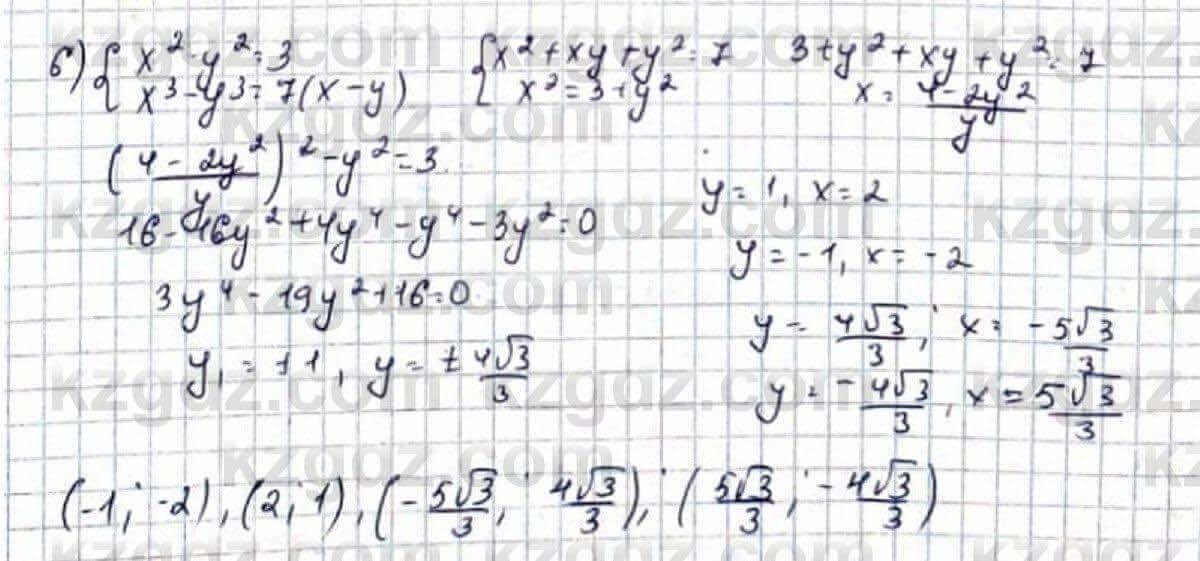 б) { x² - y² = 3      { x² + xy + y² = 7      3 + y² + xy + y² = 7
x³ - y³ = 7(x - y)      x² = 3 + y²      x = (4 - 2y²)/y
((4 - 2y²)/y)² - y² = 3.
16 - 16y² + 4y⁴ - y⁴ - 3y² = 0
3y⁴ - 19y² + 16 = 0
y₁ = ±1, y = ± 4√3/3
y = 1, x = 2
y = -1, x = -2
y = 4√3/3; x = -5√3/3
y = -4√3/3, x = 5√3/3
(-1; -2), (2; 1), (-5√3/3; 4√3/3); (5√3/3; -4√3/3)
kzgdz.com